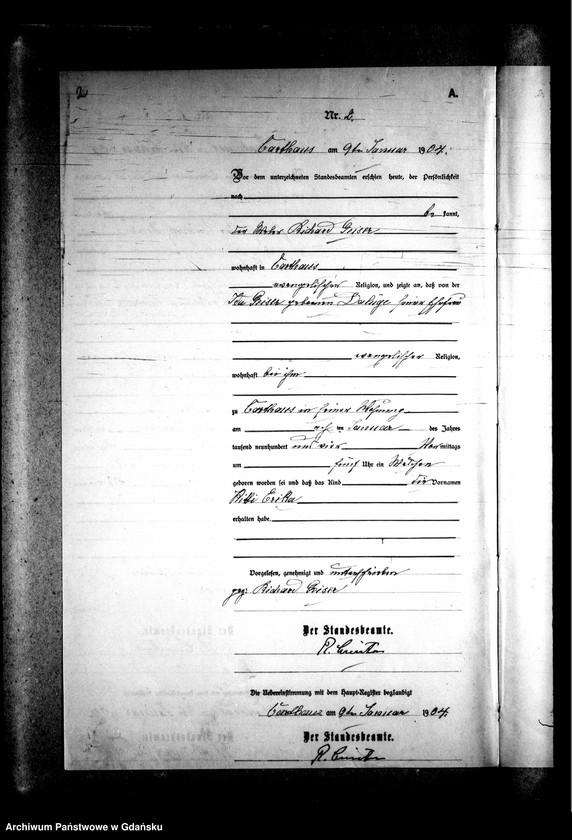 2
A.
Nr. 2.
Carthaus am 9ten Januar 1904.
Vor dem unterzeichneten Standesbeamten erschien heute, der Persönlichkeit
nach
be kannt,
der Maler Richard Geiser
wohnhaft in Carthaus
evangelischen Religion, und zeigte an, daß von der
Ida Geiser geborenen seiner Ehefrau
evangelischer Religion,
wohnhaft bei ihm
zu Carthaus in seiner Wohnung
am ten Januar des Jahres
tausend neunhundert und vier Vormittags
um fünf Uhr ein Mädchen
geboren worden sei und daß das Kind die Vornamen
Erika
erhalten habe.
Vorgelesen, genehmigt und unterschrieben
gez. Richard Geiser
Der Standesbeamte.
R.
Die Uebereinstimmung mit dem Haupt-Register beglaubigt
Carthaus am 9ten Januar 1904.
Der Standesbeamte.
R.
Archiwum Państwowe w Gdańsku